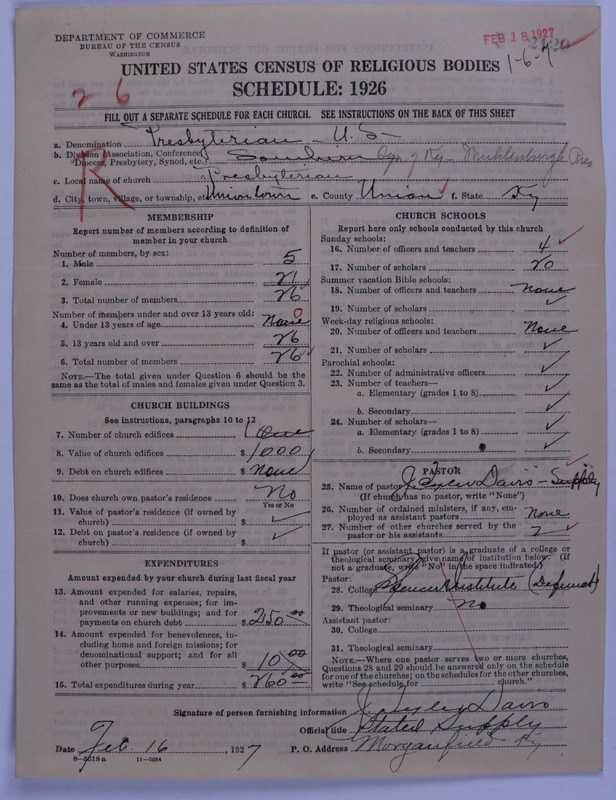 DEPARTMENT OF COMMERCE
BUREAU OF THE CENSUS
WASHINGTON
FEB 18 1927
1-6-7
UNITED STATES CENSUS OF RELIGIOUS BODIES
SCHEDULE: 1926
26
FILL OUT A SEPARATE SCHEDULE FOR EACH CHURCH. SEE INSTRUCTIONS ON THE BACK OF THIS SHEET
R
a. Denomination Presbyterian - U.S.
b. Division (Association, Conference, Diocese, Presbytery, Synod, etc.) Syn. of Ky - Muhlenburgh Pres
c. Local name of church Presbyterian
d. City, town, village, or township, etc. Uniontown e. County Union f. State Ky
MEMBERSHIP
Report number of members according to definition of
member in your church
Number of members, by sex:
1. Male 5
2. Female 21
3. Total number of members 26
Number of members under and over 13 years old:
4. Under 13 years of age None 0
5. 13 years old and over 26
6. Total number of members 26
NOTE.—The total given under Question 6 should be
the same as the total of males and females given under Question 3.
CHURCH BUILDINGS
See instructions, paragraphs 10 to 12
7. Number of church edifices 1 One
8. Value of church edifices $ 1000
9. Debt on church edifices $ None
10. Does church own pastor's residence No
Yes or No
11. Value of pastor's residence (if owned by
church) $
12. Debt on pastor's residence (if owned by
church) $
EXPENDITURES
Amount expended by your church during last fiscal year
13. Amount expended for salaries, repairs,
and other running expenses; for im-
provements or new buildings; and for
payments on church debt $ 250.00
14. Amount expended for benevolences, in-
cluding home and foreign missions; for
denominational support; and for all
other purposes $ 10.00
15. Total expenditures during year $ 260.00
CHURCH SCHOOLS
Report here only schools conducted by this church
Sunday schools:
16. Number of officers and teachers 4
17. Number of scholars 20
Summer vacation Bible schools:
18. Number of officers and teachers None
19. Number of scholars
Week-day religious schools:
20. Number of officers and teachers None
21. Number of scholars
Parochial schools:
22. Number of administrative officers
23. Number of teachers—
a. Elementary (grades 1 to 8)
b. Secondary
24. Number of scholars—
a. Elementary (grades 1 to 8)
b. Secondary
PASTOR
25. Name of pastor J. Lesley Davis - Supply
(If church has no pastor, write "None")
26. Number of ordained ministers, if any, em-
ployed as assistant pastors None
27. Number of other churches served by the
pastor or his assistants 2
If pastor (or assistant pastor) is a graduate of a college or
theological seminary, give name of institution below. (If
not a graduate, write "No" in the space indicated)
Pastor:
28. College Institute (Defunct)
29. Theological seminary No
Assistant pastor:
30. College
31. Theological seminary
NOTE.—Where one pastor serves two or more churches,
Questions 28 and 29 should be answered only on the schedule
for one of the churches; on the schedules for the other churches,
write "See schedule for church."
Signature of person furnishing information J. Lesley Davis
Official title Stated Supply
Date Feb. 16 1927 P. O. Address Morganfield Ky
8-5518 a 11-9054